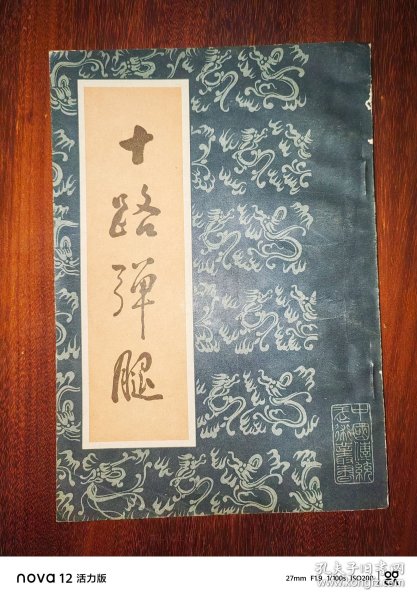 十路弹腿
中國傳統
武術叢書
nova 12 活力版
27mm F1.9 1/100s ISO200
孔夫子旧书网